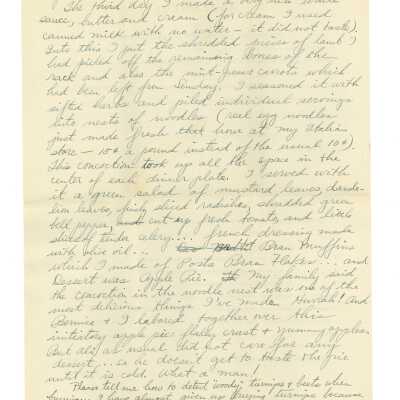 The third day I made a very nice white
sauce, butter and cream (for cream I used
canned milk with no water - it did not taste).
Into this I put the shredded pieces of lamb I
had picked off the remaining bones of the
rack and also the mint-peas carrots which
had been left from Sunday. I seasoned it with
sifted herbs and piled individual servings
into nests of noodles (real egg noodles
just made fresh that hour at my Italian
store - 10¢ a pound instead of the usual 10¢).
This concoction took up all the space in the
center of each dinner plate. I served with
it a green salad of mustard leaves, dande-
lion leaves, finely sliced radishes, shredded green
bell pepper, and cut up fresh tomato, and little
slices of tender celery... french dressing made
with olive oil... Bran Muffins
which I made of Posts Bran Flakes... and
Dessert was Apple Pie. My family said
the concoction in the noodle nest was one of the
most delicious things I've made. Hurrah! And
Bernice & I labored together over this
apple pie flaky crust & yummy apples.
But ali as usual did not care for any
dessert... so he doesn't get to taste the pie
until it is cold. What a man!
Please tell me how to detect "woody" turnips & beets when
buying. I have almost given up buying turnips because